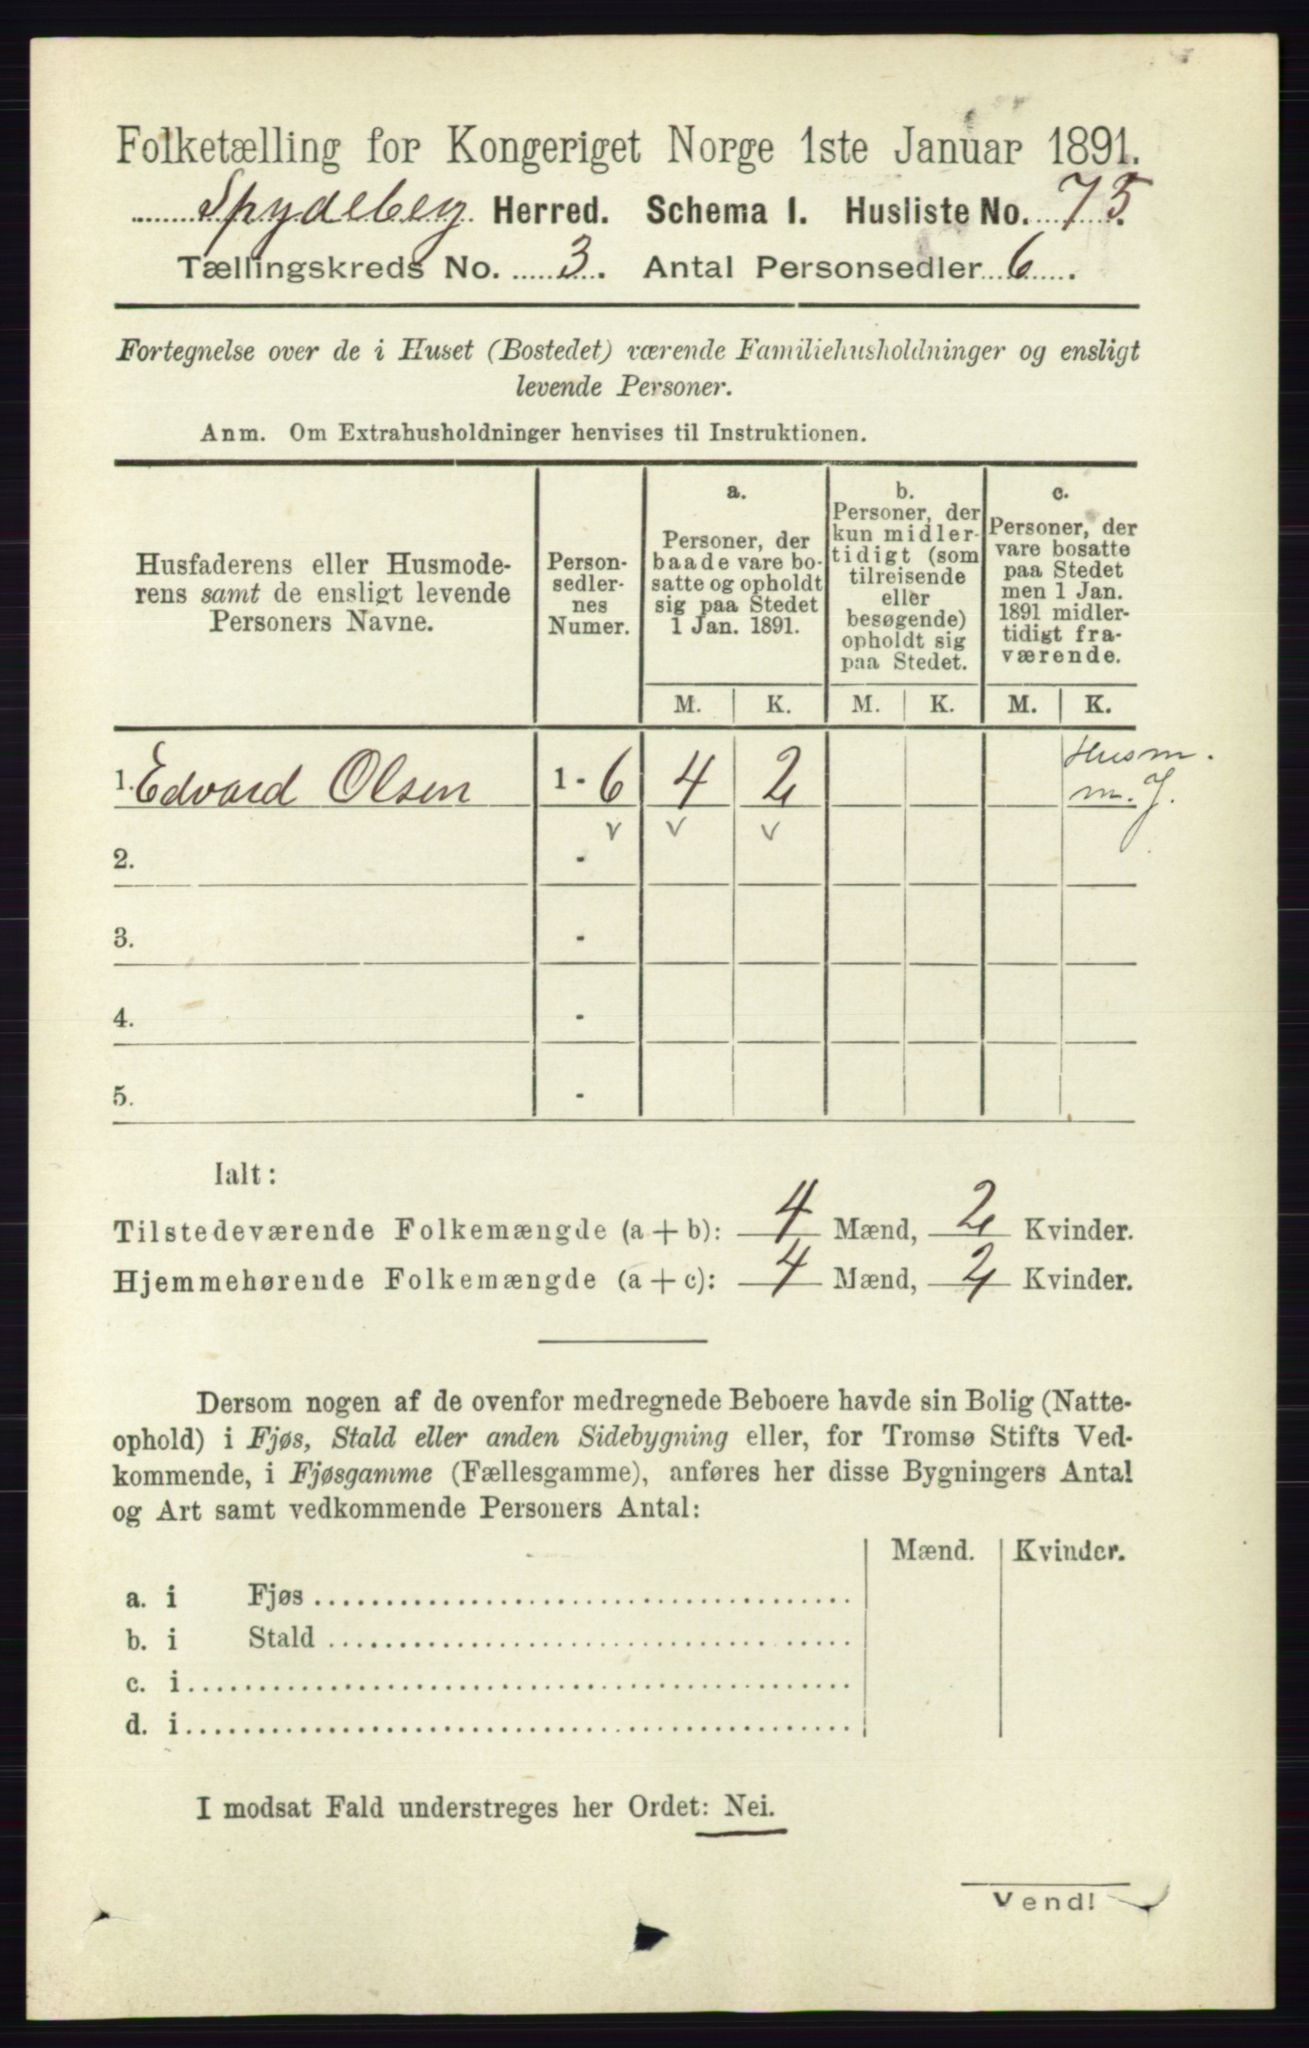 Folketælling for Kongeriget Norge 1ste Januar 1891.
Spydeberg Herred. Schema I. Husliste No. 75.
Tællingskreds No. 3. Antal Personsedler 6.
Fortegnelse over de i Huset (Bostedet) værende Familiehusholdninger og ensligt
levende Personer.
Anm. Om Extrahusholdninger henvises til Instruktionen.
Husfaderens eller Husmode-
rens samt de ensligt levende
Personers Navne.
Person-
sedler-
nes
Numer.
a.
Personer, der
baade vare bo-
satte og opholdt
sig paa Stedet
1 Jan. 1891.
b.
Personer, der
kun midler-
tidigt (som
tilreisende
eller
besøgende)
opholdt sig
paa Stedet.
c.
Personer, der
vare bosatte
paa Stedet
men 1 Jan.
1891 midler-
tidigt fra-
værende.
M. K. M. K. M. K.
1. Edvard Olsen 1 - 6 4 2 Husm.
m. J.
2. -
3. -
4. -
5. -
Ialt:
Tilstedeværende Folkemængde (a + b): 4 Mænd, 2 Kvinder.
Hjemmehørende Folkemængde (a + c): 4 Mænd, 2 Kvinder.
Dersom nogen af de ovenfor medregnede Beboere havde sin Bolig (Natte-
ophold) i Fjøs, Stald eller anden Sidebygning eller, for Tromsø Stifts Ved-
kommende, i Fjøsgamme (Fællesgamme), anføres her disse Bygningers Antal
og Art samt vedkommende Personers Antal:
Mænd. Kvinder.
a. i Fjøs
b. i Stald
c. i
d. i
I modsat Fald understreges her Ordet: Nei.
Vend!